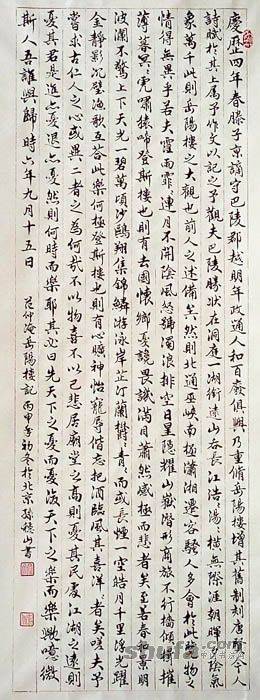 慶歷四年春滕子京謫守巴陵郡越明年政通人和百廢俱興乃重脩岳陽樓增其舊制刻唐賢今人
詩賦於其上屬予作文以記之予觀夫巴陵勝狀在洞庭一湖銜遠山吞長江浩浩湯湯橫無際涯朝暉夕陰氣
象萬千此則岳陽樓之大觀也前人之述備矣然則北通巫峽南極瀟湘遷客騷人多會於此覽物之
情得無異乎若夫霪雨霏霏連月不開陰風怒號濁浪排空日星隱耀山嶽潛形商旅不行檣傾楫摧
薄暮冥冥虎嘯猿啼登斯樓也則有去國懷鄉憂讒畏譏滿目蕭然感極而悲者矣至若春和景明
波瀾不驚上下天光一碧萬頃沙鷗翔集錦鱗游泳岸芷汀蘭鬱鬱青青而或長煙一空皓月千里浮光躍
金靜影沉璧漁歌互答此樂何極登斯樓也則有心曠神怡寵辱偕忘把酒臨風其喜洋洋者矣嗟夫予
嘗求古仁人之心或異二者之為何哉不以物喜不以己悲居廟堂之高則憂其民處江湖之遠則
憂其君是進亦憂退亦憂然則何時而樂耶其必曰先天下之憂而憂後天下之樂而樂歟噫微
斯人吾誰與歸時六年九月十五日
范仲淹岳陽樓記丙申年初冬於北京孫山書